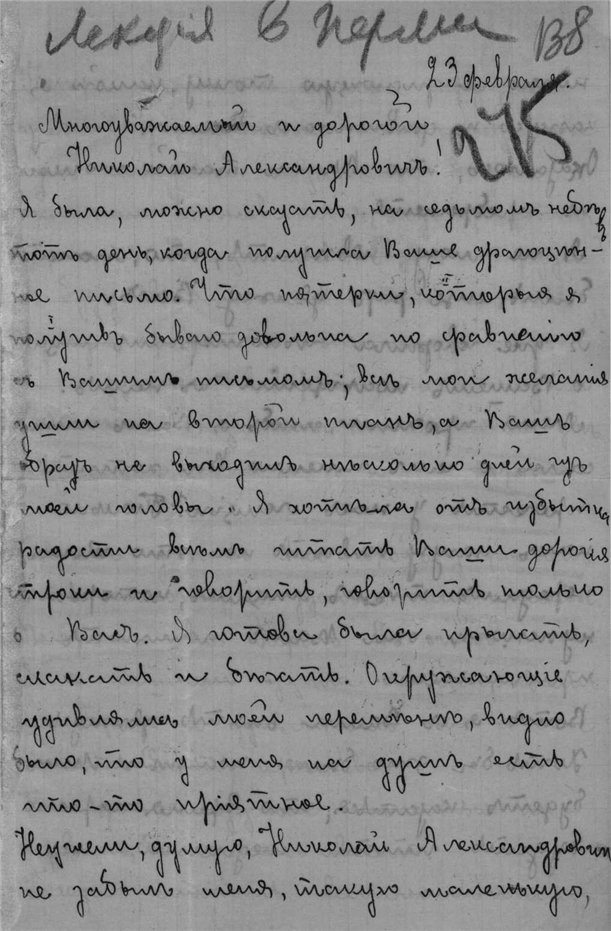 Лекція в Перми
138
23 февраля.
275
Многоуважаемый и дорогой
Николай Александровичъ!
Я была, можно сказать, на седьмомъ небѣ, въ
тотъ день, когда получила Ваше драгоцѣн-
ное письмо. Что пятерки, которыя я
получивъ бываю довольна по сравненію
съ Вашимъ письмомъ; всѣ мои желанія
ушли на второй планъ, а Вашъ
образъ не выходилъ нѣсколько дней изъ
моей головы. Я хотѣла отъ избытка
радости всѣмъ читать Ваши дорогія
строки и говорить, говорить только
о Васъ. Я готова была прыгать,
скакать и бѣжать. Окружающіе
удивлялись моей перемѣнѣ, видно
было, что у меня на душѣ есть
что-то пріятное.
Неужели, думаю, Николай Александровичъ
не забылъ меня, такую маленькую,